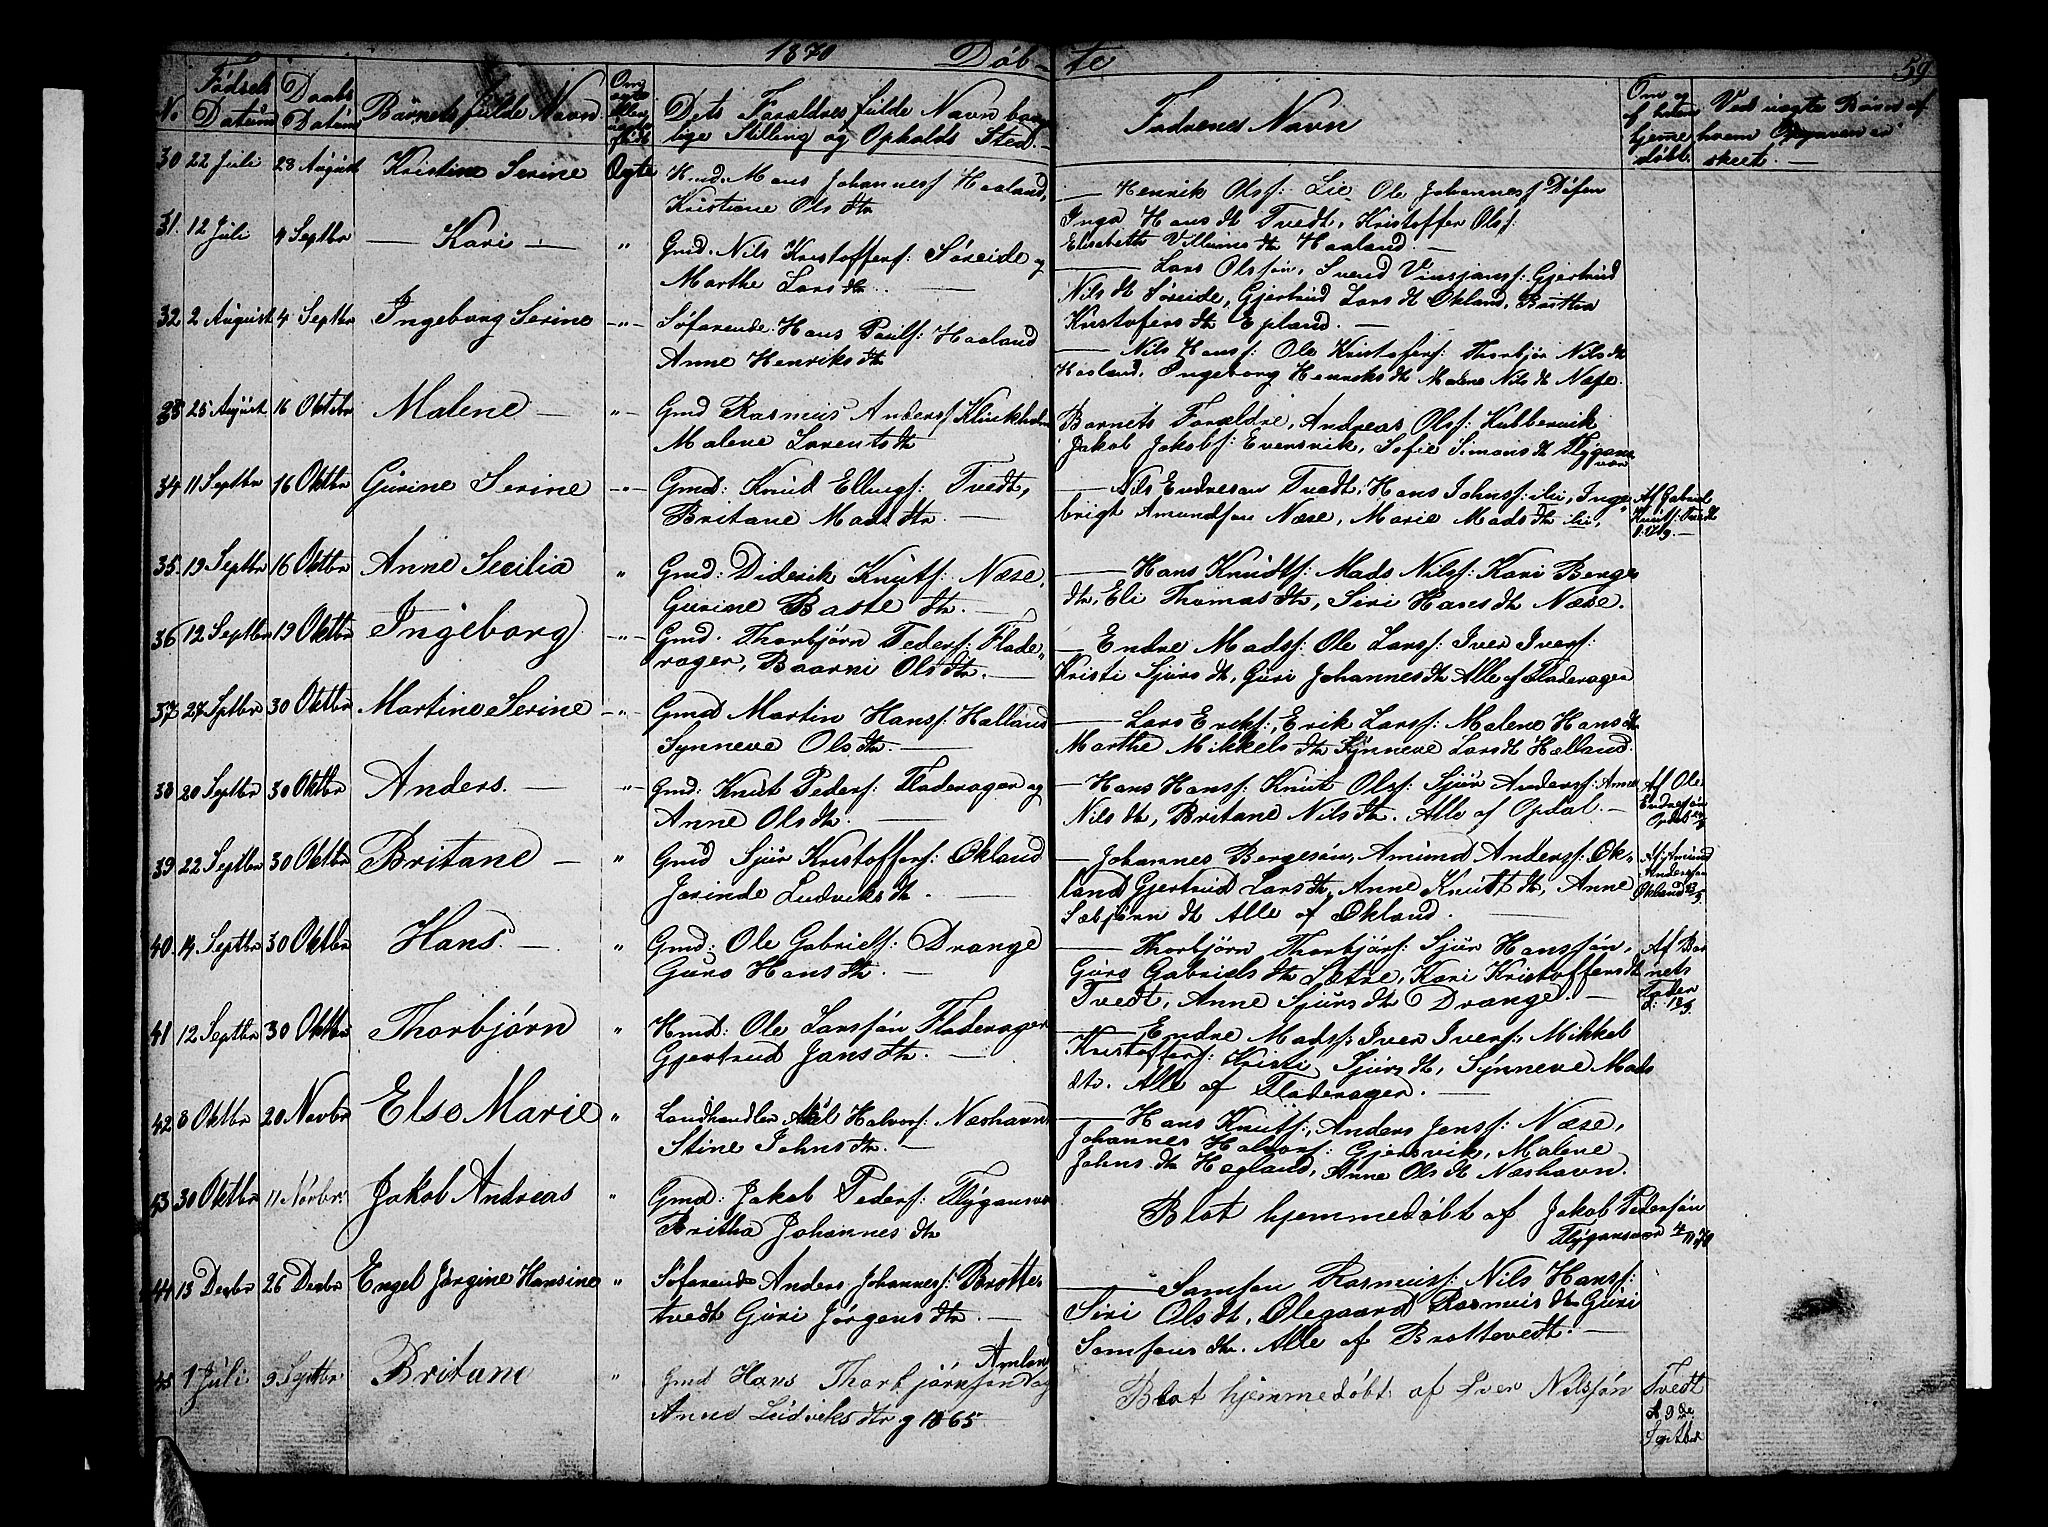 1870 Döb- te 59
No
Födsels Datum
Daabs Datum
Barnets fulde Navn
Om ægte eller
Dets Foraldres fulde Navn borger-
lige Stilling og Opholds Sted.
Fadrenes Navn
Om og af hvem hjemedöbt.
Ved uægte Börn af
hvem Opgaven er
skeet. —
30 22 Juli 28 August Kristine Serine Ægte Hmd. Mons Johannesf Haaland,
Kristiane Olsdtr
— Henrik Olsf: Lie Ole Johannesf Döfen
Inga Hansdt Tvedt, Kristoffer Olsf:
Elisabeth Villumsdtr Haaland —
31. 12 Juli 4 Septbr — Kari — " Gmd. Nils Kristoffersf: Söreide og
Marthe Larsdtr. —
— Lars Olssön, Svend Vinsjansf: Gjertrud
Nilsdt Söreide, Gjertrud Larsdt Økland, Britha
Kristofersdtr Epland. —
32 2 August 4 Septbr Ingeborg Serine —"— Söfarende. Hans Poulsf: Haaland
Anne Henriksdtr
— Nils Hansf: Ole Kristofersf: Thorbjör Nilsdt
Haaland, Ingeborg Henriksdt Malene Nilsdt Næse.
33 25 August 16 Oktobr Malene — —"— Gmd Rasmus Andersf Klinkholm
Malene Lorentsdtr
Barnets Forældre, Andreas Olsf: Kubbervik
Jakob Jakobf: Evensvik, Sofie Simonsdt Flygans
vær
34 11 Septbr 16 Oktbr Gurine Serine —"— Gmd: Knud Ellingf: Tvedt,
Britane Madsdtr. —
— Nils Endresøn Tvedt, Hans Johnsf: ibi, Inge-
brigt Amundsøn Næse, Marie Madsdtr ibi.
Af Gabriel
Knutsf: Tvedt
35. 19 Septbr 16 Oktbr Anne Secilia " Gmd: Diderik Knutsf: Næse,
Gurine Bastedtr. —
— Hans Knudtsf: Mads Nilsf: Kari Berges
dtr, Eli Thomasdtr, Siri Hansdtr Næse.
36 12 Septbr 19 Oktbr Ingeborg —"— Gmd. Thorbjörn Pedersf: Flade"
rager, Baarni Olsdtr. —
— Endre Madsf: Ole Larsf: Iver Iversf:
Kristi Sjursdt, Guri Johannesdt Alle af Fladerager
37 27 Sptbr 30 Oktbr Martine Serine —"— Gmd Martin Hansf: Halland
Synneve Olsdtr. —
— Lars Eriksf:, Erik Larsf: Malene Hansdt
Marthe Mikkelsdtr Synneve Larsdt Halland.
38 20 Septbr 30 Oktbr Anders. — —"— Gmd: Knut Pedersf: Fladerager og
Anne Olsdtr. —
— Hans Hansf: Knut Olsf: Sjur Andersf: Anne
Nilsdtr, Britane Nilsdtr. Alle af Opdal. —
Af Ole
Endresøn
Opdal
39 22 Septbr 30 Oktbr Britane — " Gmd Sjur Kristoffersf: Økland
Jorinde Ludviksdtr. —
— Johannes Bergesön, Amund Andersf: Øk-
land Gjertrud Larsdtr, Anne Knutsdtr, Anne
Sæbjörndt Alle af Økland. —
Af Amund
Andersøn
Økland
40. 14 Septbr 30 Oktbr Hans. — " Gmd: Ole Gabrielsf: Drange
Guro Hansdtr. —
— Thorbjörn Thorbjörsf: Sjur Hanssön,
Guro Gabrielsdtr Sætre, Kari Kristoffersdt
Tvedt, Anne Sjursdtr Drangel. —
Af Bar
nets
Fader
41 12 Septbr 30 Oktbr Thorbjörn " Hmd: Ole Larssön Fladerager
Gjertrud Jansdtr. —
— Endre Madsf: Iver Iversf: Mikkel
Kristoffersf: Kristi Sjursdt, Synneve Mads
dtr. Alle af Fladerager. —
42 8 Oktbr 20 Novbr Else Marie " Landhandler Aksel Halvorsf: Næshavn
Stine Johnsdtr. —
— Hans Knutsf:, Anders Jensf: Næse,
Johannes Halvorsf: Gjersvik, Malene
Johnsdtr Hagland, Anne Olsdt Næshavn.
43 30 Oktbr 11 Novbr Jakob Andreas " Gmd: Jakob Pedersf: Flygansvær
Britha Johannesdtr
Blot hjemmedöbt af Jakob Pedersön
Flygansvær 4/11 70
44 13 Decbr 26 Decbr Engel Jörgine Hansine " Söfarende Anders Johannesf: Brotte-
tvedt Guri Jörgensdtr. —
— Samson Rasmusf: Nils Hansf:
Siri Olsdt, Olegaard Rasmusdtr Guri
Samsonsdtr. Alle af Brottevedt. —
45 1 Juli 9 Septbr Britane " Gmd Hans Thorbjörnsen Amland og
Anne Ludviksdtr g 1865
Blot hjemmedöbt af Iver Nilssön Tvedt
d. 9de
Septbr